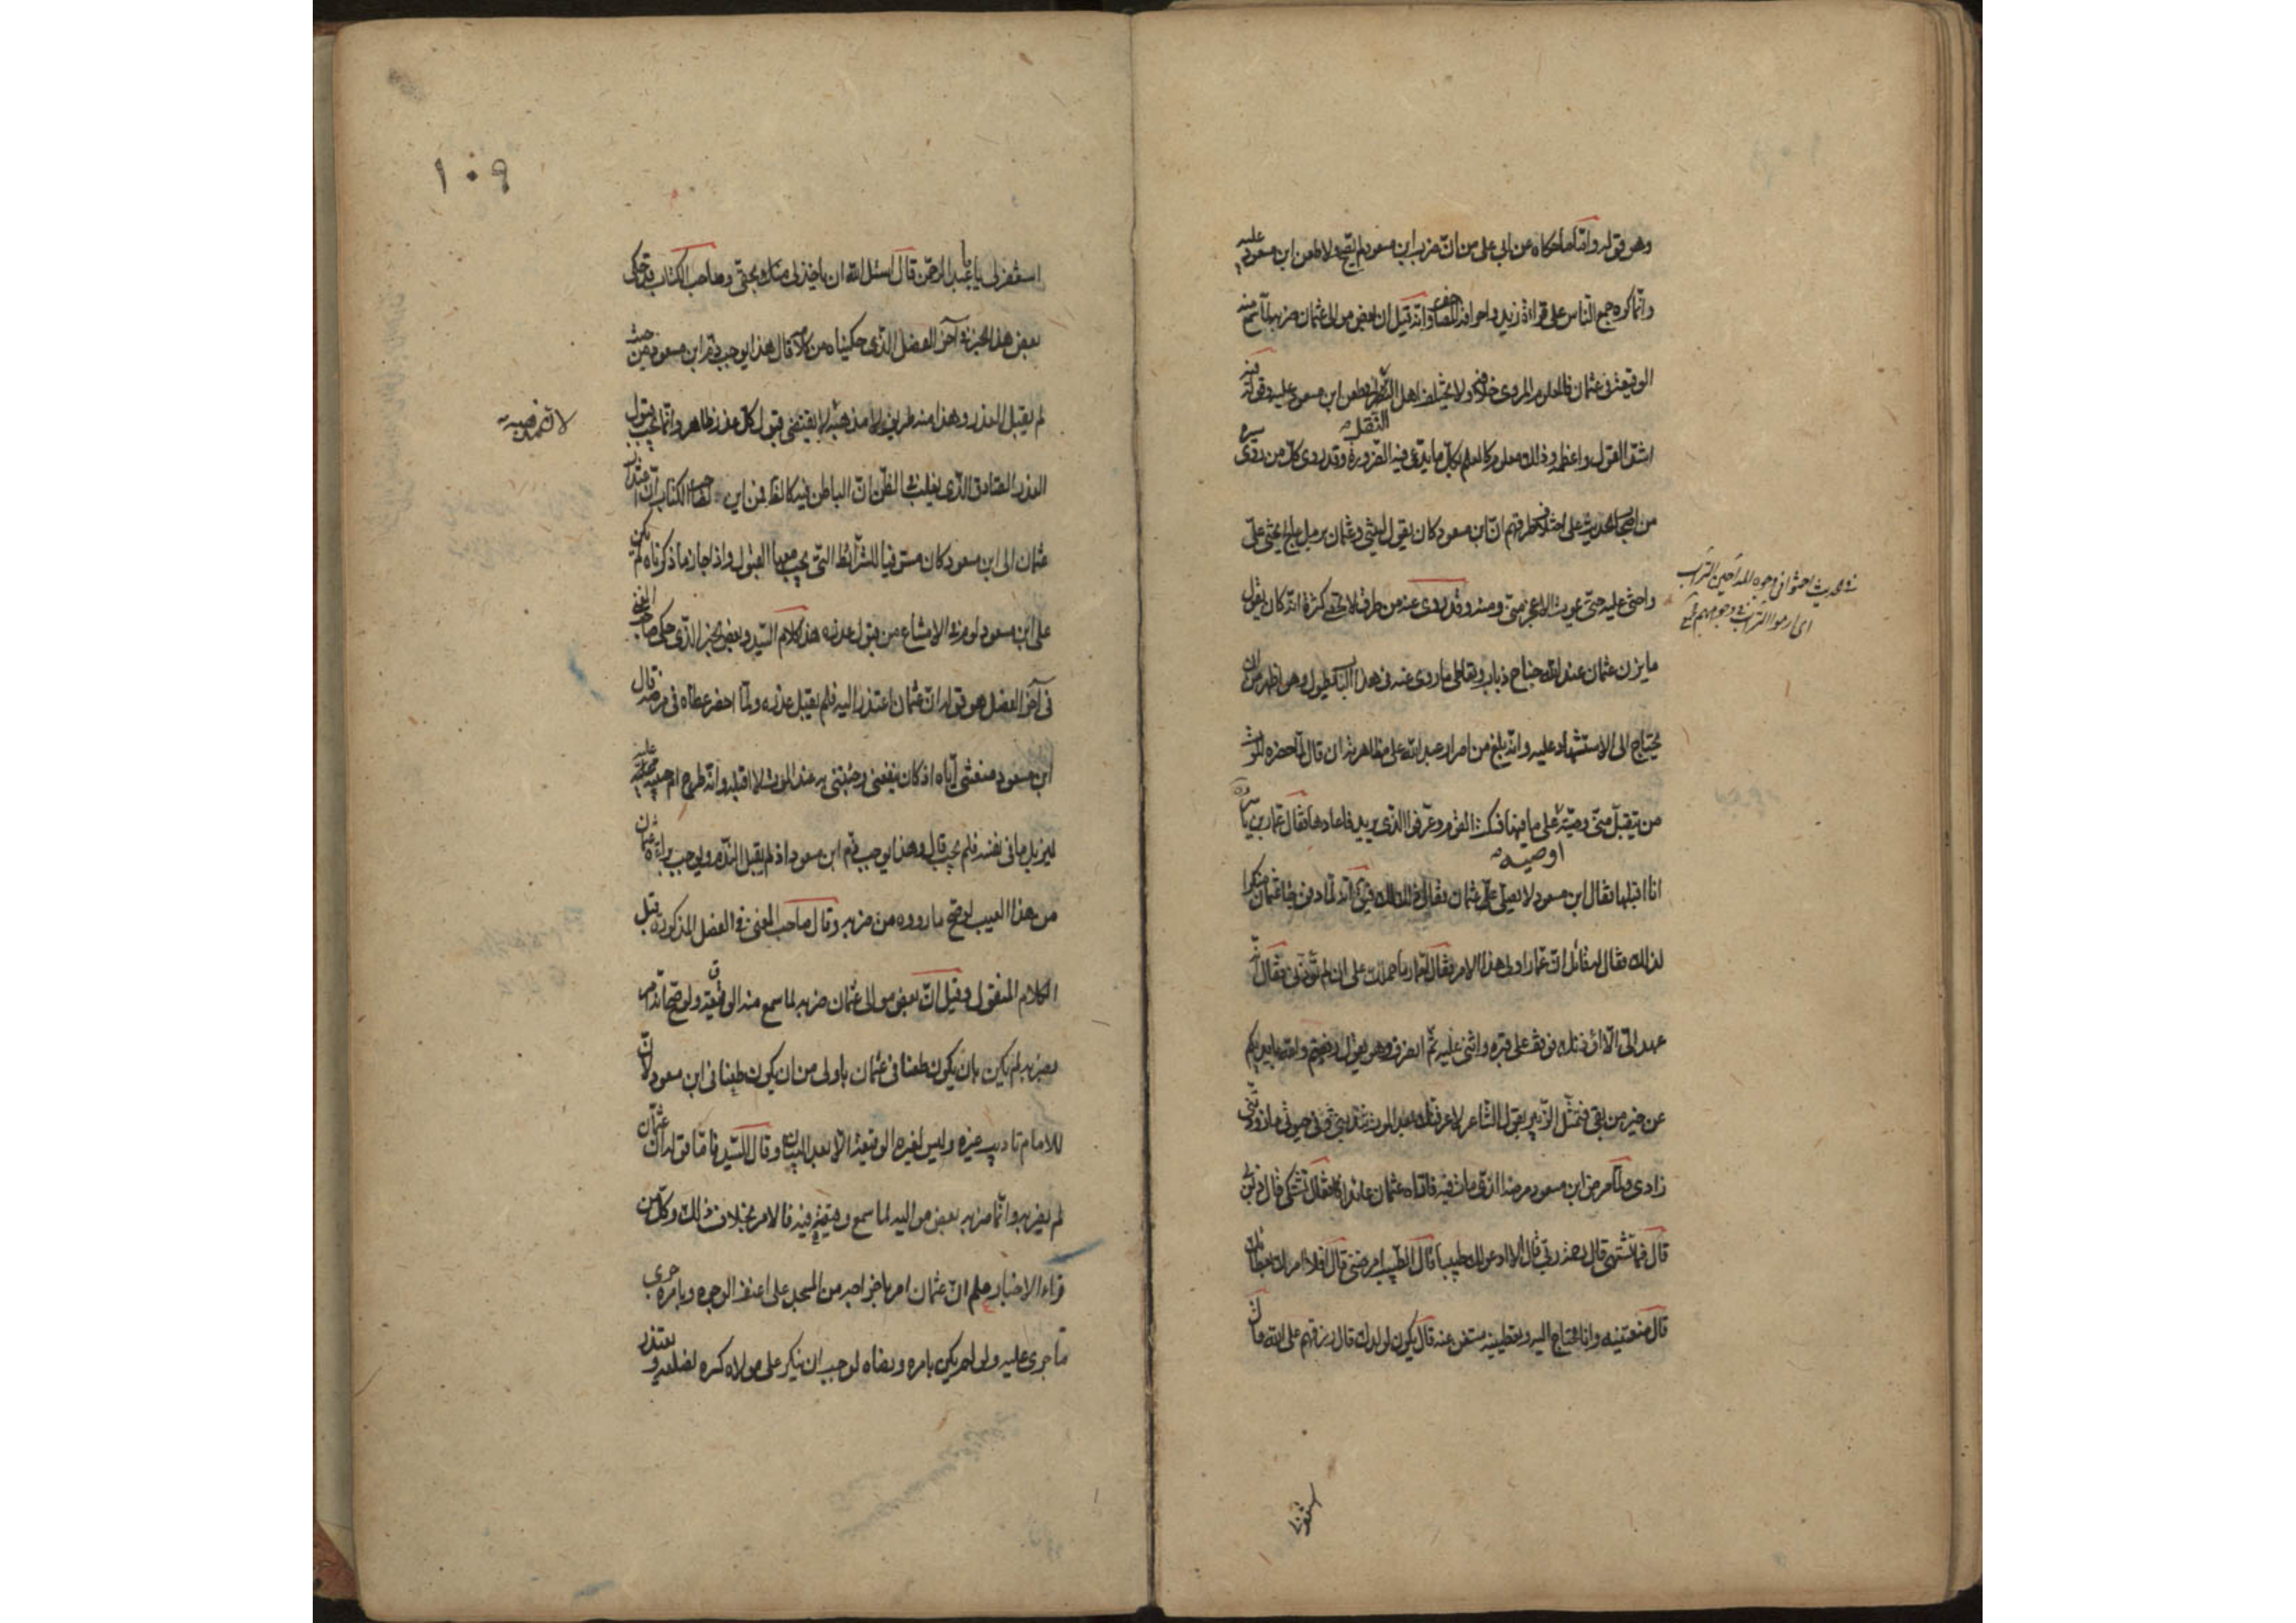 وهو قوله وانّما ما حكاه عن ابي علي من انّ ضرب ابن مسعود لم يصح ولا طعن ابن مسعود عليه
وانّما كره جمع الناس على قراءة زيد واحراقه المصاحف وانّه قيل ان بعض موالى عثمان ضربه لمّا سمع منه
الوقيعة في عثمان فالمعلوم المروى خلافه ولا يختلف اهل النقل في طعن ابن مسعود عليه وقوله فيه
النقل
اشدّ القول واعظمه وذلك معلوم كالعلم بكل ما يدّعى فيه الضرورة وقد روى كلّ من روى سيرة
من اصحاب الحديث على اختلاف طرقهم انّ ابن مسعود كان يقول ليتني وعثمان برمل عالج يحثى علىّ
واحثى عليه حتّى يموت الاعجز منّى ومنه وقد روى عنه من طرق لا تحصى كثرة انّه كان يقول
ما يزن عثمان عند الله جناح ذباب وتعاطى ما روى عنه في هذا الباب يطول وهو اظهر من ان
يحتاج الى الاستشهاد عليه وانّه بلغ من اصرار عبد الله على مظاهرته ان قال لمّا حضره الموت
من يتقبّل منّى وصيّة على ما فيها فسكت القوم وعرفوا الذى يريد فاعادها فقال عمار بن ياسر
اوصيه
انا اقبلها فقال ابن مسعود لا يصلّى علىّ عثمان فقال ذلك لك فيق انّه لمّا دفن جاء عثمان منكرا
لذلك فقال له قائل انّ عمارا ولى هذا الامر فقال لعمار ما حملك على ان لم تؤذنى فقال انّه
عهد الىّ الّا اؤذنك فوقف على قبره واثنى عليه ثمّ انصرف وهو يقول رفعتم والله بايديكم
عن خير من بقى فتمثّل الزبير بقول الشاعر لا اعرفنّك بعد الموت تندبنى وفي حيوتى ما زودتنى
زادى ولمّا مرض ابن مسعود مرضه الذى مات فيه فاتاه عثمان عائدا فقال ما تشتكى قال ذنوبى
قال فما تشتهى قال رحمة ربّى قال الا ادعو لك طبيبا قال الطبيب امرضنى قال افلا امر لك بعطائك
قال منعتنيه وانا محتاج اليه وتعطينيه مستغن عنه قال يكون لولدك قال رزقهم على الله قال
في حديث احثوا في وجوه المداحين التراب
اى ارموا التراب في وجوههم
استغفر لى يا ابا عبد الرحمن قال اسئل الله ان ياخذ لى منك بحقّى وصاحب الكتاب قد حكى
بعض هذا الخبر في آخر الفصل الذى حكيناه من كلامه قال هذا يوجب ذمّ ابن مسعود من حيث
لم يقبل العذر وهذا منه طريف لانّ مذهبه لا يقتضى قبول كل عذر ظاهر وانّما يجب قبول
العذر الصادق الذى يغلب في الظنّ انّ الباطن فيه كالظاهر فمن اين لصاحب الكتاب انّ اعتذار
عثمان الى ابن مسعود كان مستوفيا للشرائط التى يجب معها القبول واذا جاز ما ذكرناه لم يكن
على ابن مسعود لوم في الامتناع من قبول عذره هذا كلام السّيد وبعض الخبر الذى حكى صاحب المغنى
في آخر الفصل هو قوله انّ عثمان اعتذر اليه فلم يقبل عذره ولمّا احضر عطاه في مرضه قال
ابن مسعود منعتنى ايّاه اذ كان ينفعنى وجئتنى به عند الموت لا اقبله وانّه طرح ام حبيبة عليه
ليزيل ما في نفسه فلم يجب قال وهذا يوجب ذم ابن مسعود اذ لم يقبل الندم ويوجب براءة عثمان
من هذا العيب لو صح ما رووه من ضربه وقال صاحب المغنى في الفصل المذكور قبل
الكلام المنقول وقيل انّ بعض موالى عثمان ضربه لما سمع منه الوقيعة ولو صحّ انّه امر
بضربه لم يكن بان يكون طعنا في عثمان باولى من ان يكون طعنا في ابن مسعود لانّ
للامام تاديب غيره وليس لغيره الوقيعة الّا بعد البيان وقال السّيد فامّا قوله انّ عثمان
لم يضربه وانّما ضربه بعض مواليه لما سمع وقيعته فيه فالامر بخلاف ذلك وكل من
قراء الاخبار علم انّ عثمان امر باخراجه من المسجد على اعنف الوجوه وبامره جرى
ما جرى عليه ولو لم يكن بامره ورضاه لوجب ان ينكر على مولاه كسره لضلعه ويعتذر
١٠٩